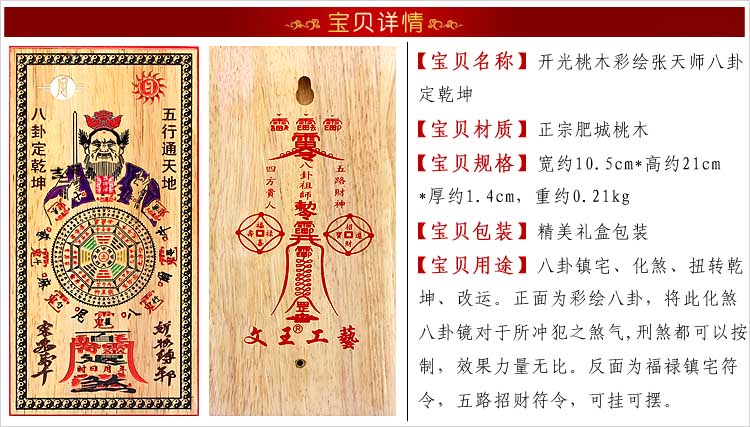 宝贝详情
月
日
八卦定乾坤
五行通天地
年月日時
八卦祖師
四方貴人
五路財神
福祿壽喜
招財進寶
文王®工藝
【宝贝名称】开光桃木彩绘张天师八卦
定乾坤
【宝贝材质】正宗肥城桃木
【宝贝规格】宽约10.5cm*高约21cm
*厚约1.4cm，重约0.21kg
【宝贝包装】精美礼盒包装
【宝贝用途】八卦镇宅、化煞、扭转乾
坤、改运。正面为彩绘八卦，将此化煞
八卦镜对于所冲犯之煞气,刑煞都可以按
制，效果力量无比。反面为福禄镇宅符
令，五路招财符令，可挂可摆。